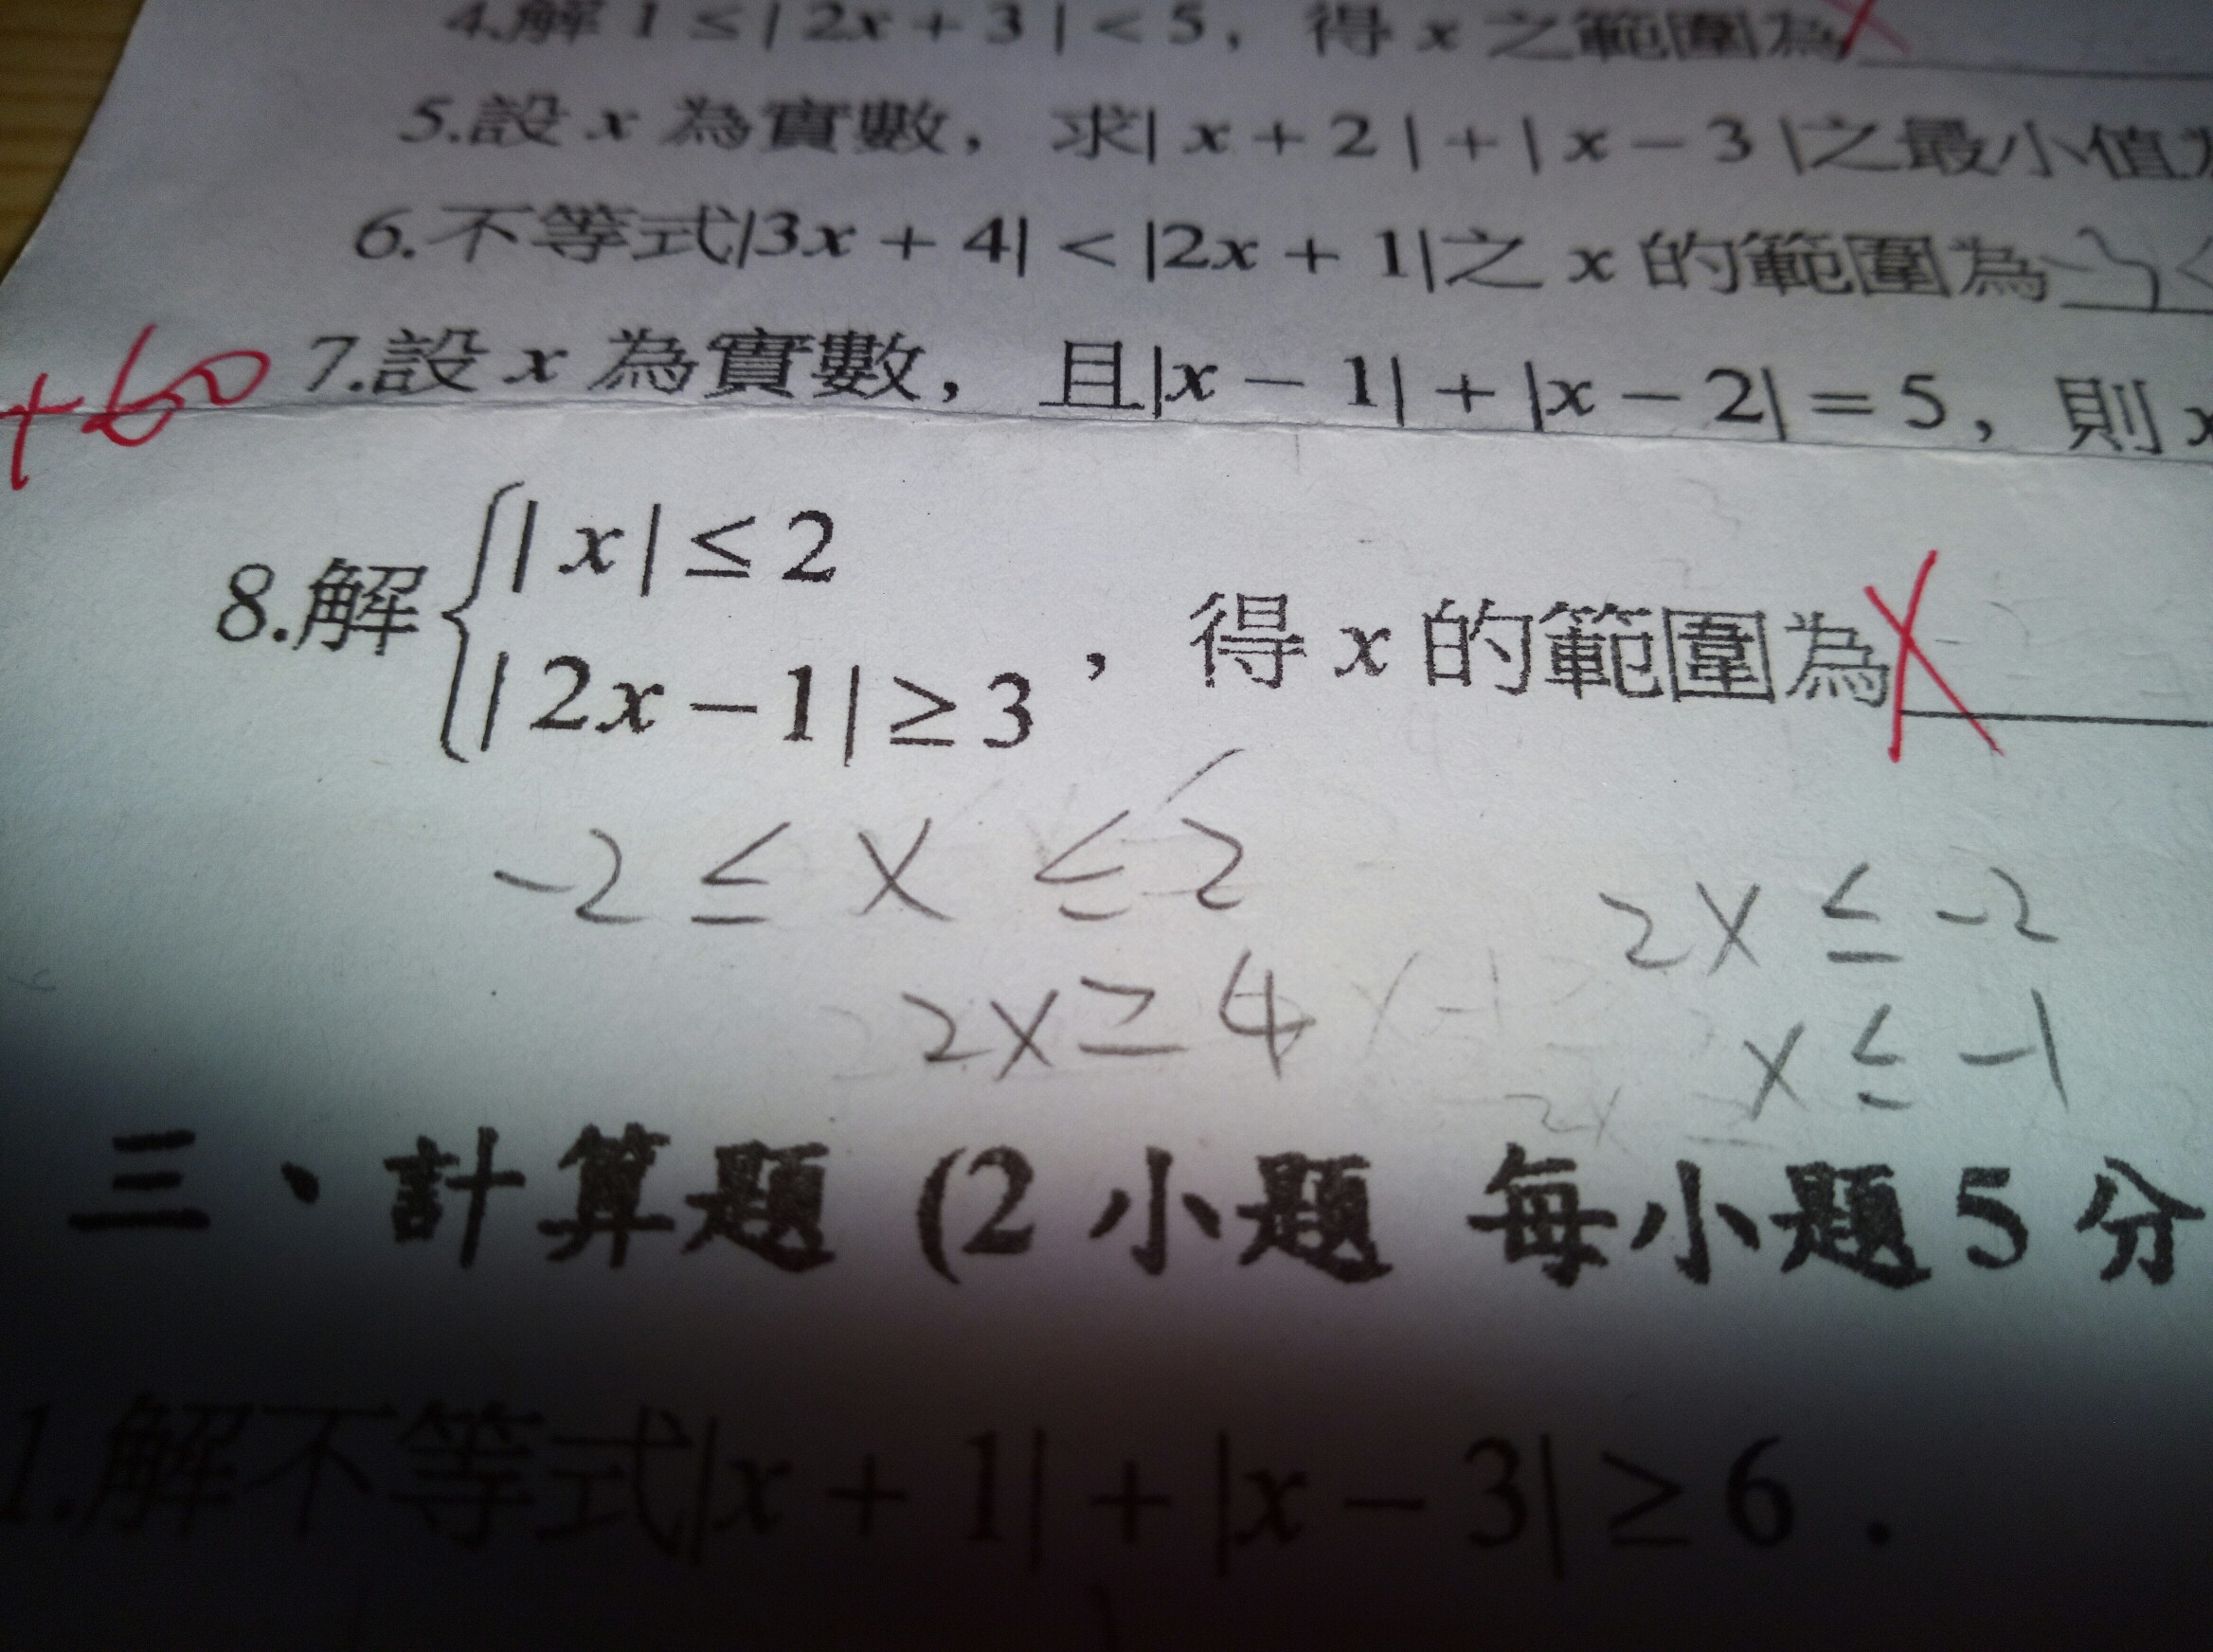 4.解 1 ≤ | 2x + 3 | < 5，得 x 之範圍為
5.設 x 為實數，求| x + 2 | + | x − 3 |之最小值
6.不等式|3x + 4| < |2x + 1|之 x 的範圍為
+60
7.設 x 為實數，且|x − 1| + |x − 2| = 5，則 x
8.解 { | x | ≤ 2
| 2x − 1 | ≥ 3 ，得 x 的範圍為
-2 ≤ x ≤ 2
2x ≤ -2
2x ≥ 4
x ≤ -1
三、計算題 (2 小題 每小題 5 分
1.解不等式|x + 1| + |x − 3| ≥ 6．